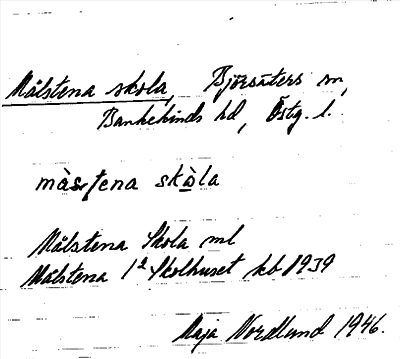 Målstena skola, Björsäters sn,
Bankekinds hd, Östg. l.
màsƭena skò̱la
Målstena Skola ml
Målstena 1² Skolhuset kb 1939
Maja Nordlund 1946.